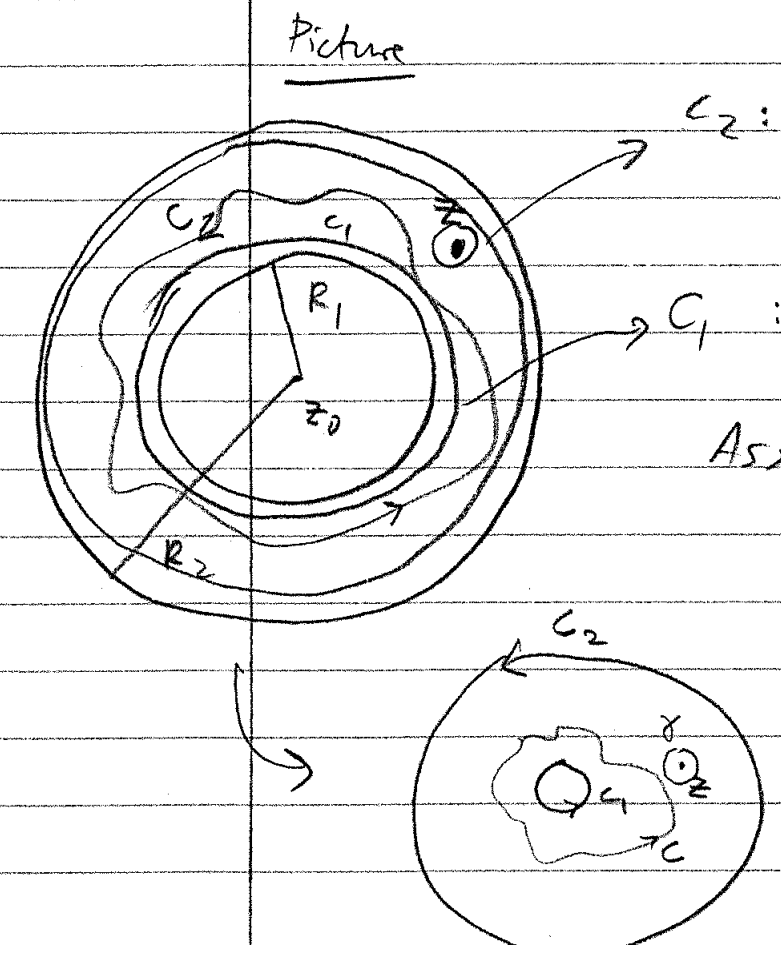 Picture
C₂ :
z
C₂
C₁
R₁
C₁ :
z₀
Ass
R₂
C₂
γ
z
C₁
C